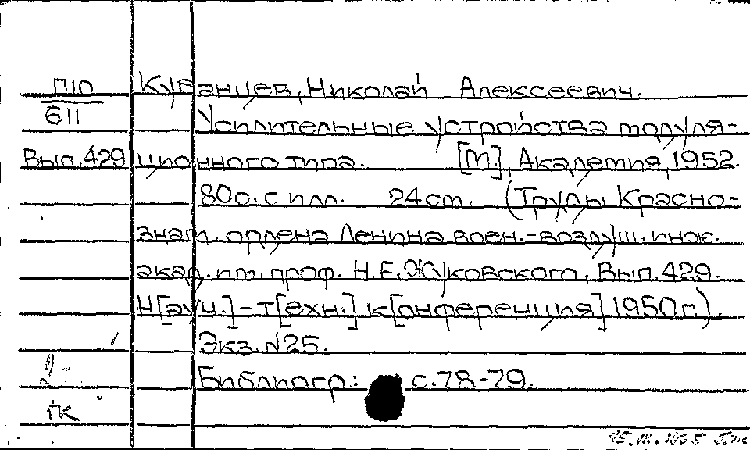 П10 Куранцев, Николай Алексеевич.
611 Усилительные устройства модуля-
Вып.429 ционного типа. [М], Академия, 1952.
80 с. с илл. 24 см. (Труды Красно-
знам. ордена Ленина воен.-воздуш. инж.
акад. им. проф. Н.Е. Жуковского, Вып. 429.
Н[ауч.]-т[ехн.] к[онференция] 1950 г.).
Экз. №25.
Библиогр.: с. 78-79.
ПК